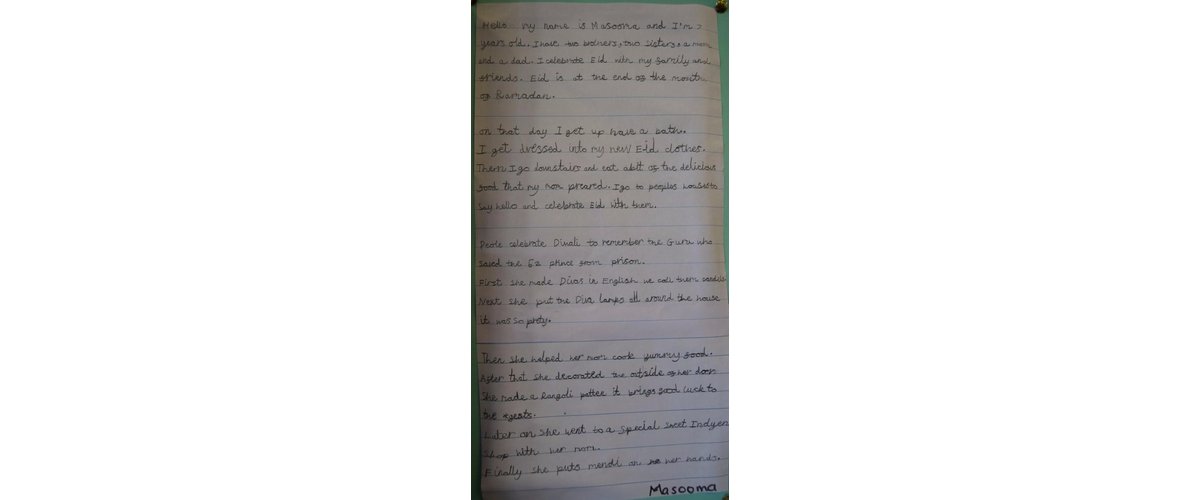 Hello my name is Masooma and I'm 7
years old. I have two brothers, two sisters, a mom
and a dad. I celebrate Eid with my family and
friends. Eid is at the end of the month
of Ramadan.
on that day I get up have a bath.
I get dressed into my new Eid clothes.
Them I go downstairs and eat abit of the delicious
food that my mom preared. I go to peoples houses to
say hello and celebrate Eid with them.
Peole celebrate Diwali to remember the Guru who
saved the 52 prince from prison.
First she made Divas in English we call them candels
Next she put the Diva lamps all around the house
it was so prety.
Then she helped her mom cook yummy food.
After that she decorated the outside of her door
She made a Rangoli pattee it brings good luck to
the
Later on she went to a special sweet Indyen
shop with her mom.
Finally she puts mendi on her hands.
Masooma